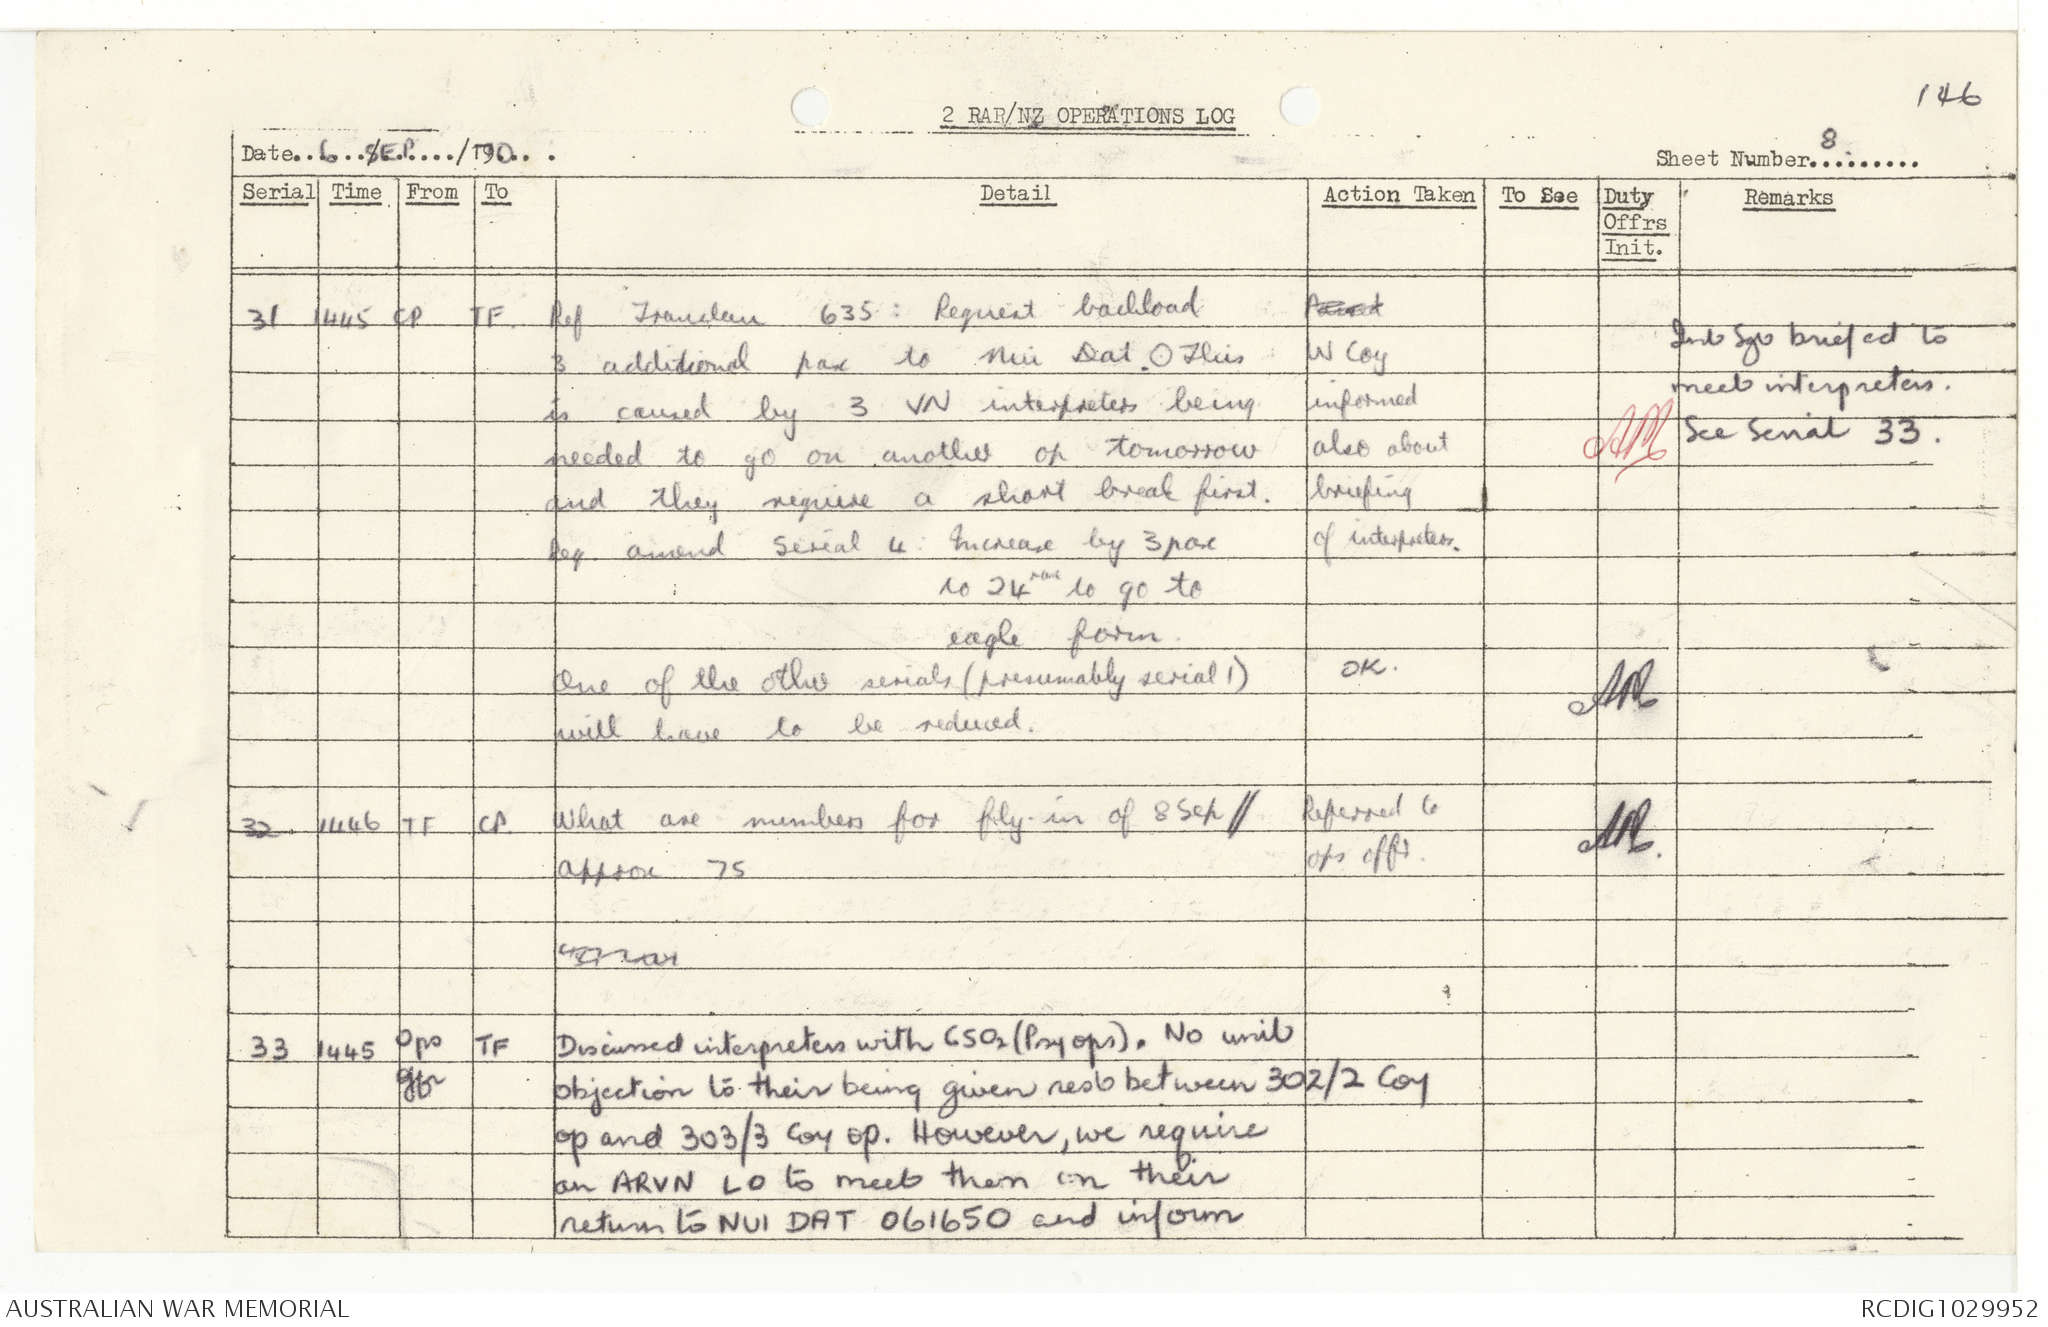 146
2 RAR/NZ OPERATIONS LOG
Date..6...SEP..../ 70.. .
Sheet Number...8......
Serial Time From To Detail Action Taken To See Duty Offrs Init. Remarks
31 1445 CP TF. Ref 635: Request backload
3 additional pax to Nui Dat. This W Coy
is caused by 3 VN interpreters being informed
needed to go on another op tomorrow also about
and they require a short break first. briefing
Req. amend Serial 4: Increase by 3 pax of interpreters.
to 24 pax to go to
eagle farm.
One of the other serials (presumably serial 1) OK.
will have to be reduced.
Int Sgt briefed to
meet interpreters.
See Serial 33.
32. 1446 TF CP. What are numbers for fly-in of 8 Sep // Referred to
approx 75 ops offr.
33 1445 Ops Offr TF Discussed interpreters with GSO2 (Psyops). No unit
objection to their being given rest between 302/2 Coy
op and 303/3 Coy op. However, we require
an ARVN LO to meet them on their
return to NUI DAT 061650 and inform
AUSTRALIAN WAR MEMORIAL
RCDIG1029952